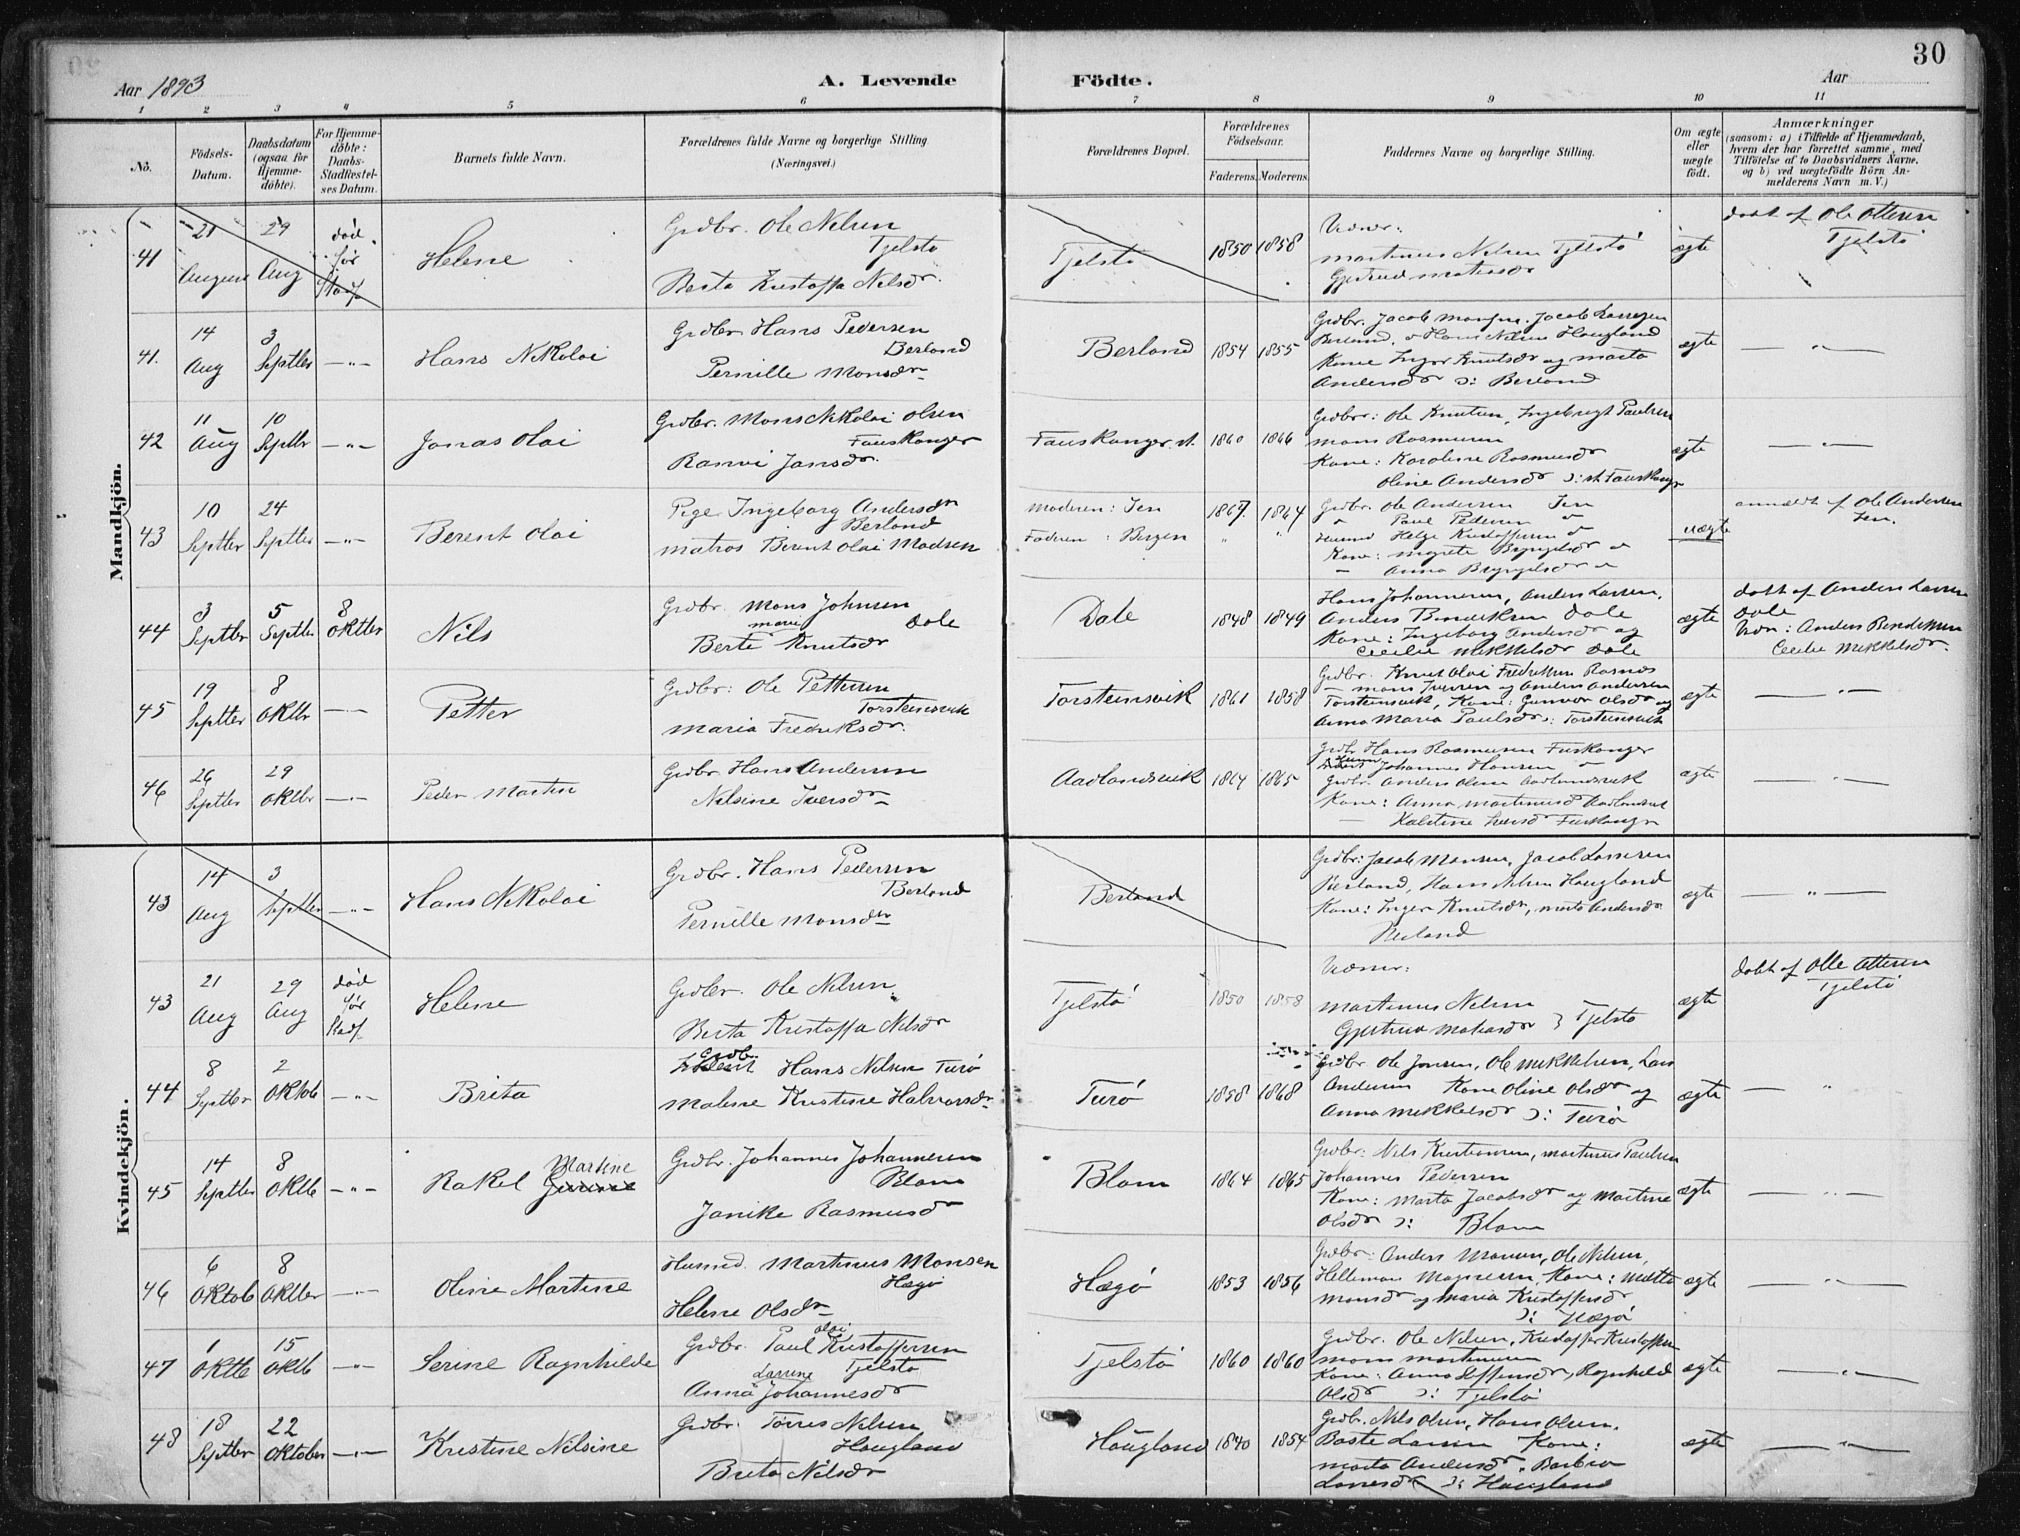 30
Aar 1893
A. Levende
Födte.
Aar
1 2 3 4 5 6 7 8 9 10 11
No.
Födsels-Datum.
Daabsdatum (ogsaa for Hjemme-döbte).
For Hjemme-döbte: Daabs-Stadfæstel-ses Datum.
Barnets fulde Navn.
Forældrenes fulde Navne og borgerlige Stilling (Næringsvei.)
Forældrenes Bopæl.
Forældrenes Födselsaar.
Faderens. Moderens.
Faddernes Navne og borgerlige Stilling.
Om ægte eller uægte födt.
Anmærkninger
(saasom: a) i Tilfælde af Hjemmedaab, hvem der har forrettet samme, med Tilföielse af to Daabsvidners Navne. og b) ved uægtefödte Börn An-melderens Navn m. V.)
Mandkjön.
41 21 August 29 Aug død før Stadf Helene
Grdbr. Ole Nilsen Tjelstø
Berta Kristoffa Nilsdr.
Tjelstø 1850 1858
Vidner:
Martinus Nilsen Tjelstø
Gjertrud Matiasdr
ægte
døbt af Ole Ottesen
Tjelstø
41. 14 Aug 3 Septbr —"— Hans Nikolai
Grdbr Hans Pedersen Berland
Pernille Monsdr
Berland 1854 1855
Grdbr. Jacob Monsen. Jacob Larsen
Berland, o Hans Nilsen Haugland
Kone Inger Knutsdr og Marta
Andersdr ɔ: Berland
ægte —"—
42 11 Aug 10 Septbr —"— Jonas Olai
Grdbr. Mons Nikolai Olsen Fauskanger
Ranvi Jansdr.
Fauskanger 1860 1866
Grdbr: Ole Knutsen, Ingebrigt Paulsen
Mons Rasmusen
Kone: Karoline Rasmusdr
Oline Andersdr ɔ:
ægte —"—
43 10 Septbr 24 Septbr —"— Berent Olai
Pige Ingeborg Andersdr Berland
Matros Berent Olai Madsen
Moderen: Jen
Faderen: Bergen
1867. 1864
Grdbr. Ole Andersen Jen
" Paul Pedersen "
Husmd Helge Kristoffersen "
Kone: Magrete Bryngelsdr "
— Anna Bryngelsdr "
uægte
anmeldt af Ole Andersen
Jen.
44 3 Septbr 5 Septbr 8 Oktbr Nils
Grdbr. Mons Johnsen Dale
Berte Marie Knutsdr
Dale 1848 1849
Hans Johannesen, Anders Larsen,
Anders Bendiksen Dale
Kone: Ingeborg Andersdr og
Cecilie Mikkelsdr Dale
ægte
døbt af Anders Larsen
Dale
Vidn: Anders Bendiksen
Cecilie Mikkelsdr.
45 19 Septbr 8 Oktbr —"— Petter
Grdbr: Ole Pettersen Torsteinsvik
Maria Fredriksdr.
Torsteinsvik 1861 1858
Grdbr: Knut Olai Fredriksen Rasnøs
— Mons Iversen og Anders Andersen
Torsteinsvik, Kone: Gunvor Olsdr og
Anna Maria Paulsdr ɔ: Torsteinsvik
ægte —"—
46 26 Septbr 29 Oktbr —"— Peder Martin
Grdbr Hans Andersen
Nilsine Iversdr
Aadlandsvik 1864 1865
Grdbr Hans Rasmusen Fuskanger
Johannes Hansen "
Grdbr. Anders Olsen Aadlandsvik
Kone: Anna Martinusd Aadlandsvik
— Iversd Fuskanger
ægte —"—
Kvindekjön.
43 14 Aug 3 Septbr —"— Hans Nikolai
Grdbr. Hans Pedersen Berland
Pernille Monsdr
Berland
Grdbr: Jacob Monsen, Jacob Larsen
Berland, Hans Nilsen Haugland
Kone: Inger Knutsdr, Marta Andersdr
Berland
ægte —"—
43 21 Aug 29 Aug død før Stadf. Helene
Grdbr. Ole Nilsen
Berta Kristoffa Nilsdr
Tjelstø 1850 1858
Vidner:
Martinus Nilsen
Gjertrud Matiasdr } Tjelstø
ægte
døbt af Olle Ottesen
Tjelstø
44 8 Septbr 2 Oktob —"— Brita
Grdb. Hans Nilsen Turø
Malene Kristine Halvorsdr
Turø 1858 1868
Grdbr Ole Jonsen, Ole Mikkelsen, Lars
Andersen Kone Oline Olsdr og
Anna Mikkelsdr ɔ: Turø
ægte —"—
45 14 Septbr 8 Oktb —"— Rakel Martine
Grdbr. Johannes Johannesen Blom
Janike Rasmusdr
Blom 1864 1865
Grdbr: Nils Kristiansen, Martinus Paulsen
Johannes Pedersen
Kone: Marta Jacobsdr og Martine
Olsdr ɔ: Blom
ægte —"—
46 6 Oktob 8 Oktbr —"— Oline Martine
Husmd. Martinus Monsen Hægø
Helene Olsdr
Hægø 1853 1856
Grdbr: Anders Monsen, Ole Nilsen,
Helleman Magnesen, Kone: Mette
Monsdr og Maria Kristoffersdr
ɔ: Hægø
ægte —"—
47 1 Oktb 15 Oktb —"— Serine Ragnhilde
Grdbr. Paul Olai Kristoffersen Tjelstø
Anna Larsine Johannesdr
Tjelstø 1860 1860
Grdbr. Ole Nilsen, Kristoffer Kristoffersen
Mons Martinusen
Kone: Anna Steffensdr, Ragnhild
Olsdr ɔ: Tjelstø
ægte —"—
48 18 Septbr 22 Oktober —"— Kristine Nilsine
Grdbr. Tørres Nilsen Haugland
Brita Nilsdr
Haugland 1840 1854
Grdbr. Nils Olsen, Hans Olsen,
Baste Larsen Kone:
Marta Andersdr, Barbra
Larsesdr ɔ: Haugland
ægte —"—